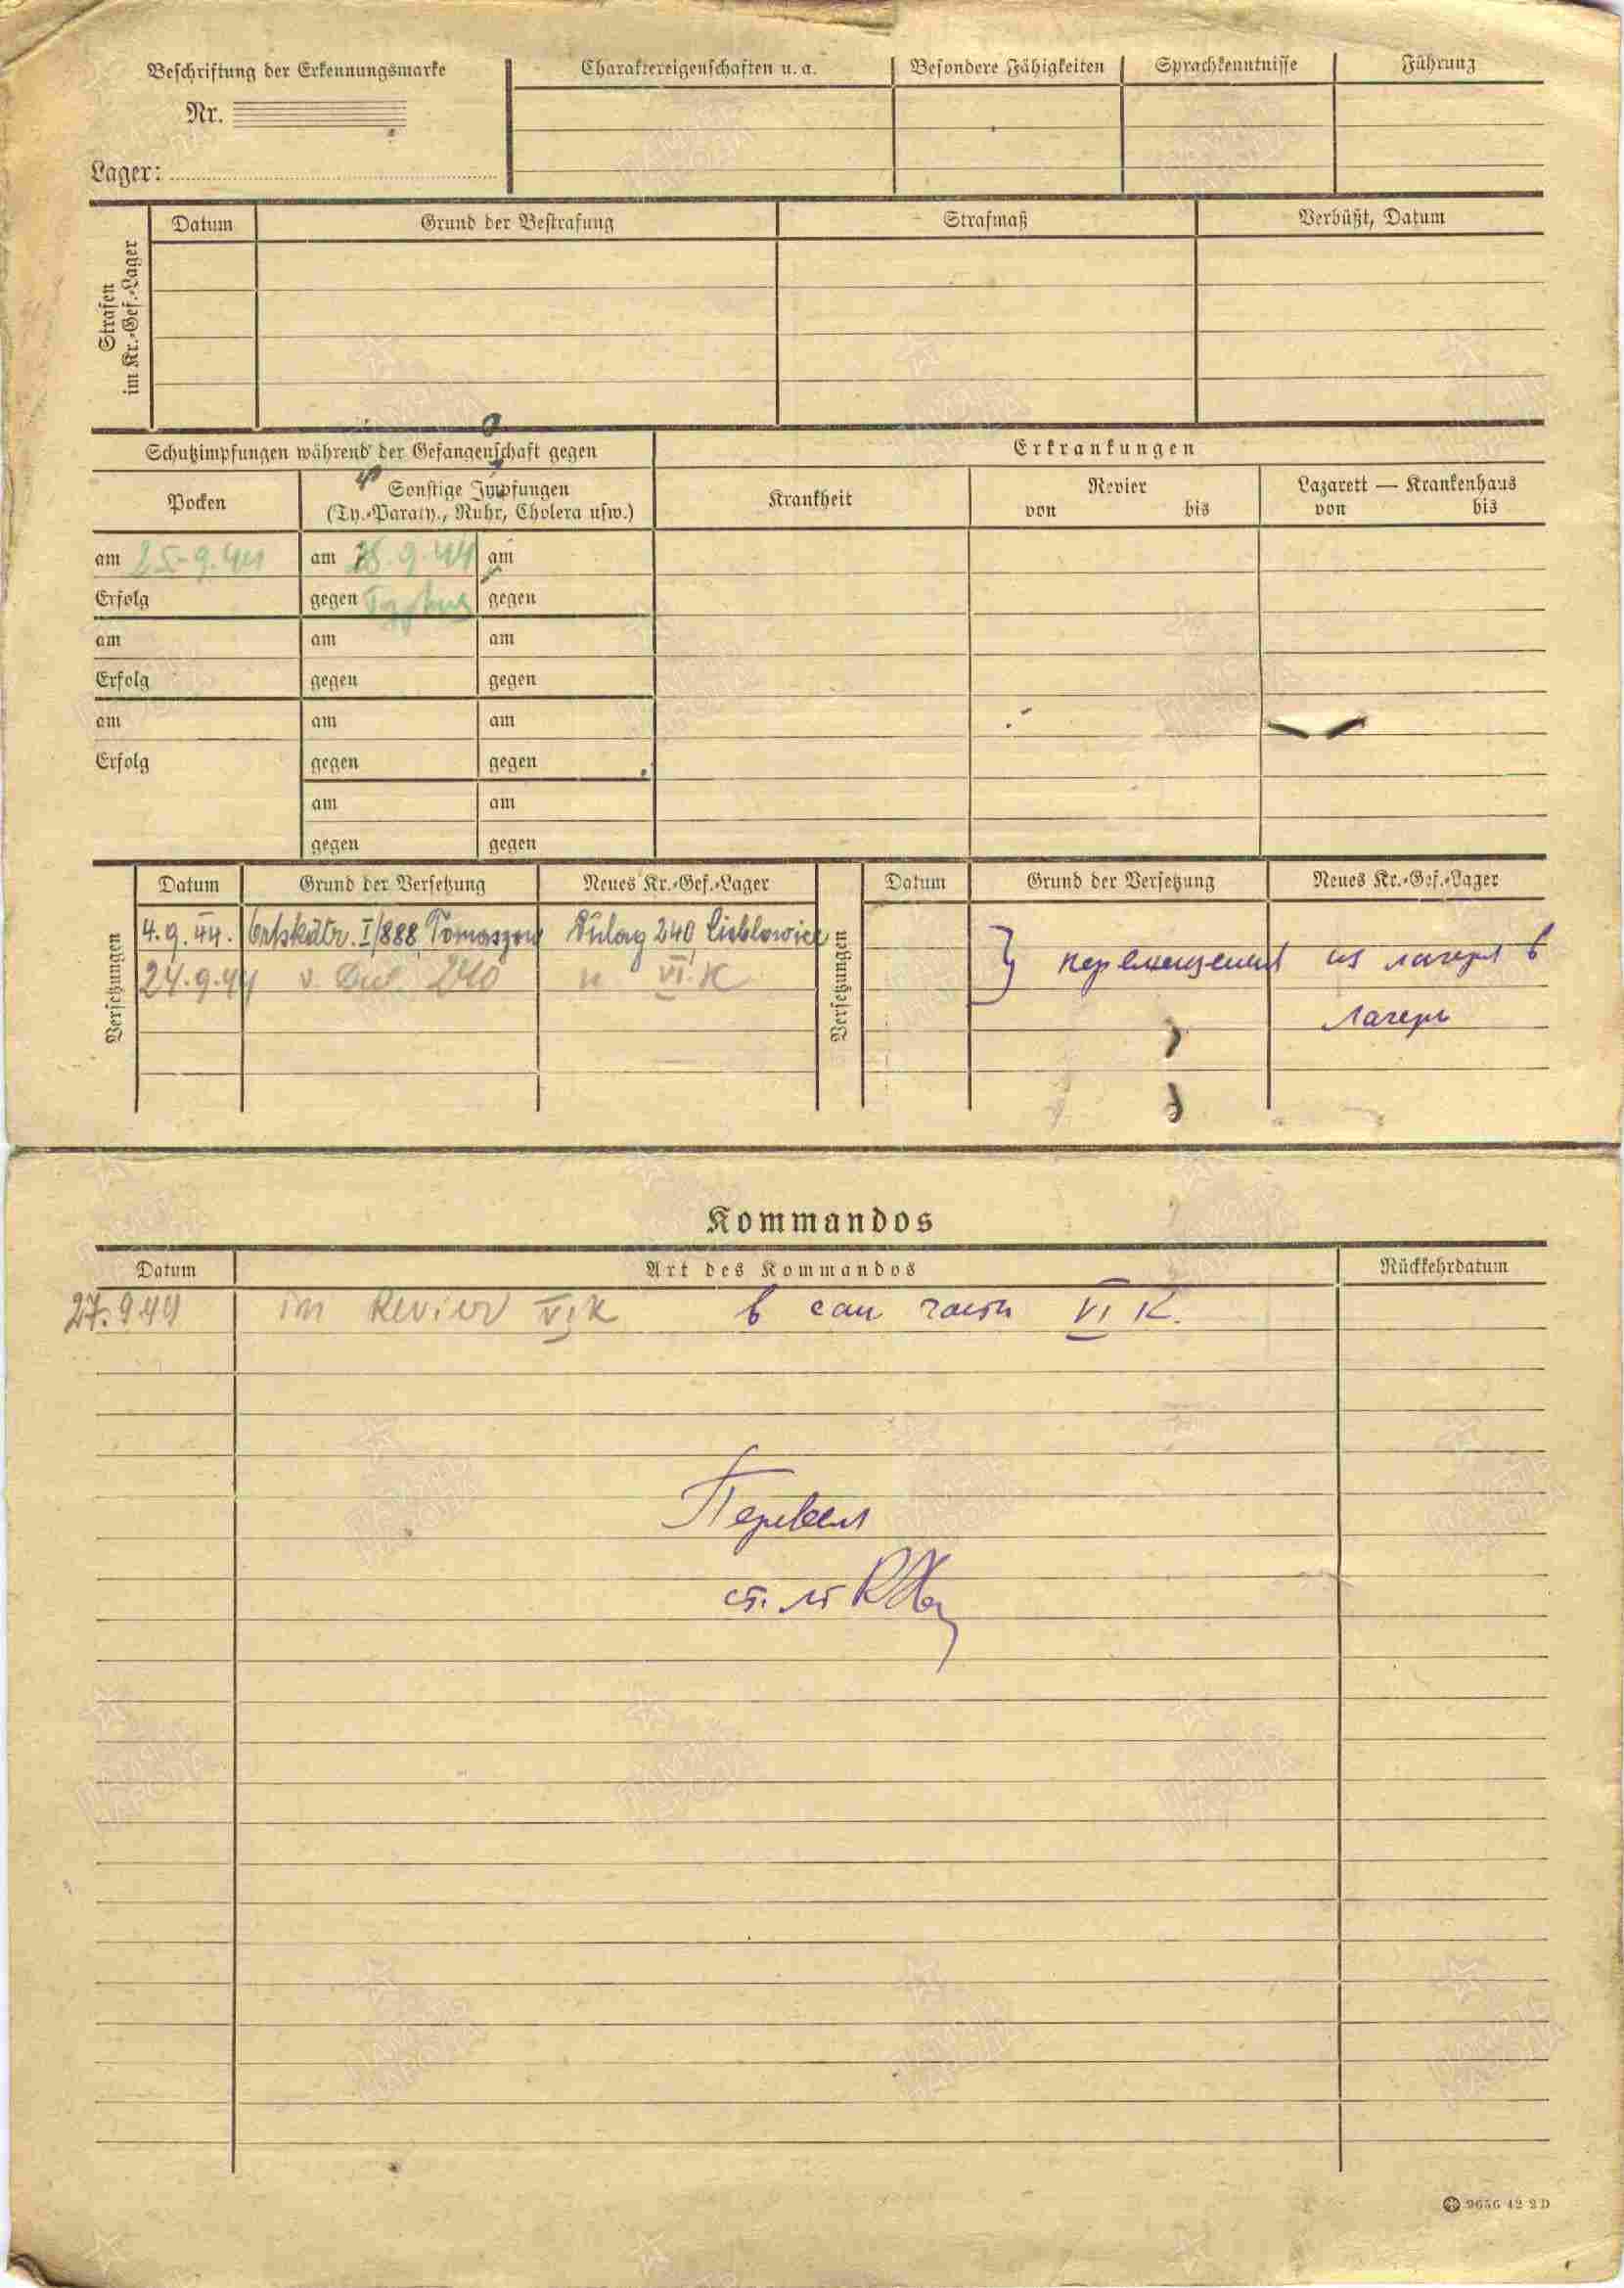 Beschriftung der Erkennungsmarke
Nr.
Lager:
Charaktereigenschaften u. a.
Besondere Fähigkeiten
Sprachkenntnisse
Führung
Strafen
im Kr.-Gef.-Lager
Datum
Grund der Bestrafung
Strafmaß
Verbüßt, Datum
Schutzimpfungen während der Gefangenschaft gegen
Erkrankungen
Pocken
Sonstige Impfungen
(Ty.-Paraty., Ruhr, Cholera usw.)
Krankheit
Revier
von bis
Lazarett — Krankenhaus
von bis
am 25.9.44 am 25.9.44 am
Erfolg gegen Typhus gegen
am am am
Erfolg gegen gegen
am am am
Erfolg gegen gegen
am am
gegen gegen
Versetzungen
Datum Grund der Versetzung Neues Kr.-Gef.-Lager
4.9.44. I/888 Tomaszow Dulag 240
24.9.44 v. Dul 240 n VI.K
Versetzungen
Datum Grund der Versetzung Neues Kr.-Gef.-Lager
} перемещения из лагеря в
лагерь
Kommandos
Datum Art des Kommandos Rückkehrdatum
27.9.44 im Revier VI K в сан часть VI K.
Перевел
ст. лт
9656 42 2D
ПАМЯТЬ НАРОДА